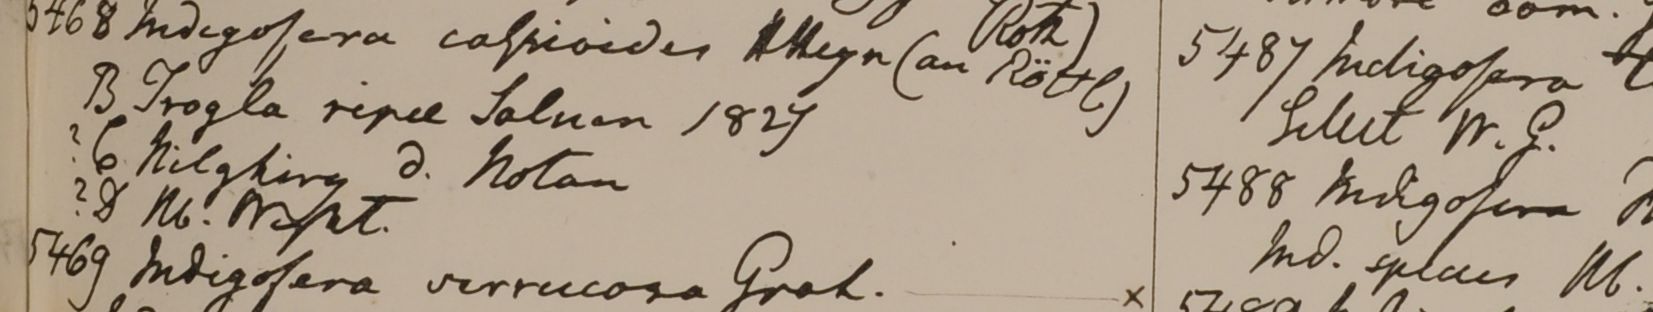 5468 Indigofera caspioides Heyn (an Roth)
Röttl)
B Trogla ripee Saluen 1827
? C Nilghiry d. Noton
? D H. Wight.
5469 Indigofera verrucosa Grah. x
com.
5487 Indigofera
Select W. G.
5488 Indigofera
Ind. species H.